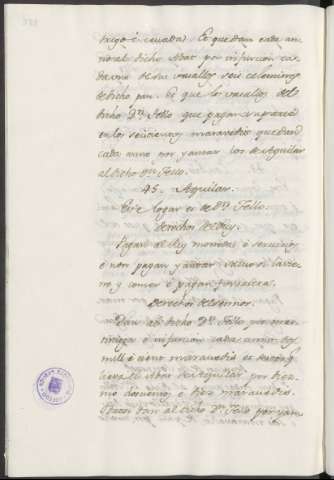 trigo é cevada) E que dan cada an
no al dicho Abat por infurcion ca
da uno de sus vasallos seis celemines
de dicho pan. E que los vasallos del
dicho Dn. Tello que pagan
en los seicientos maravedis que dan
cada anno por yantar los de Aguilar
al dicho Dn. Tello.
45. Aguilar.
Este logar es de Dn. Tello.
derechos del Rey.
Pagan al Rey monedas é servicios
é non pagan yantar salvo
é pagan fonsadera.
derechos del Sennor.
Dan al dicho Dn. Tello por mar
tiniega é infurcion cada anno dos
mill é cient maravedis
lleva el Abat de Aguilar por
é diez maravedis.
Otrosi dan al dicho Dn. Tello por yan